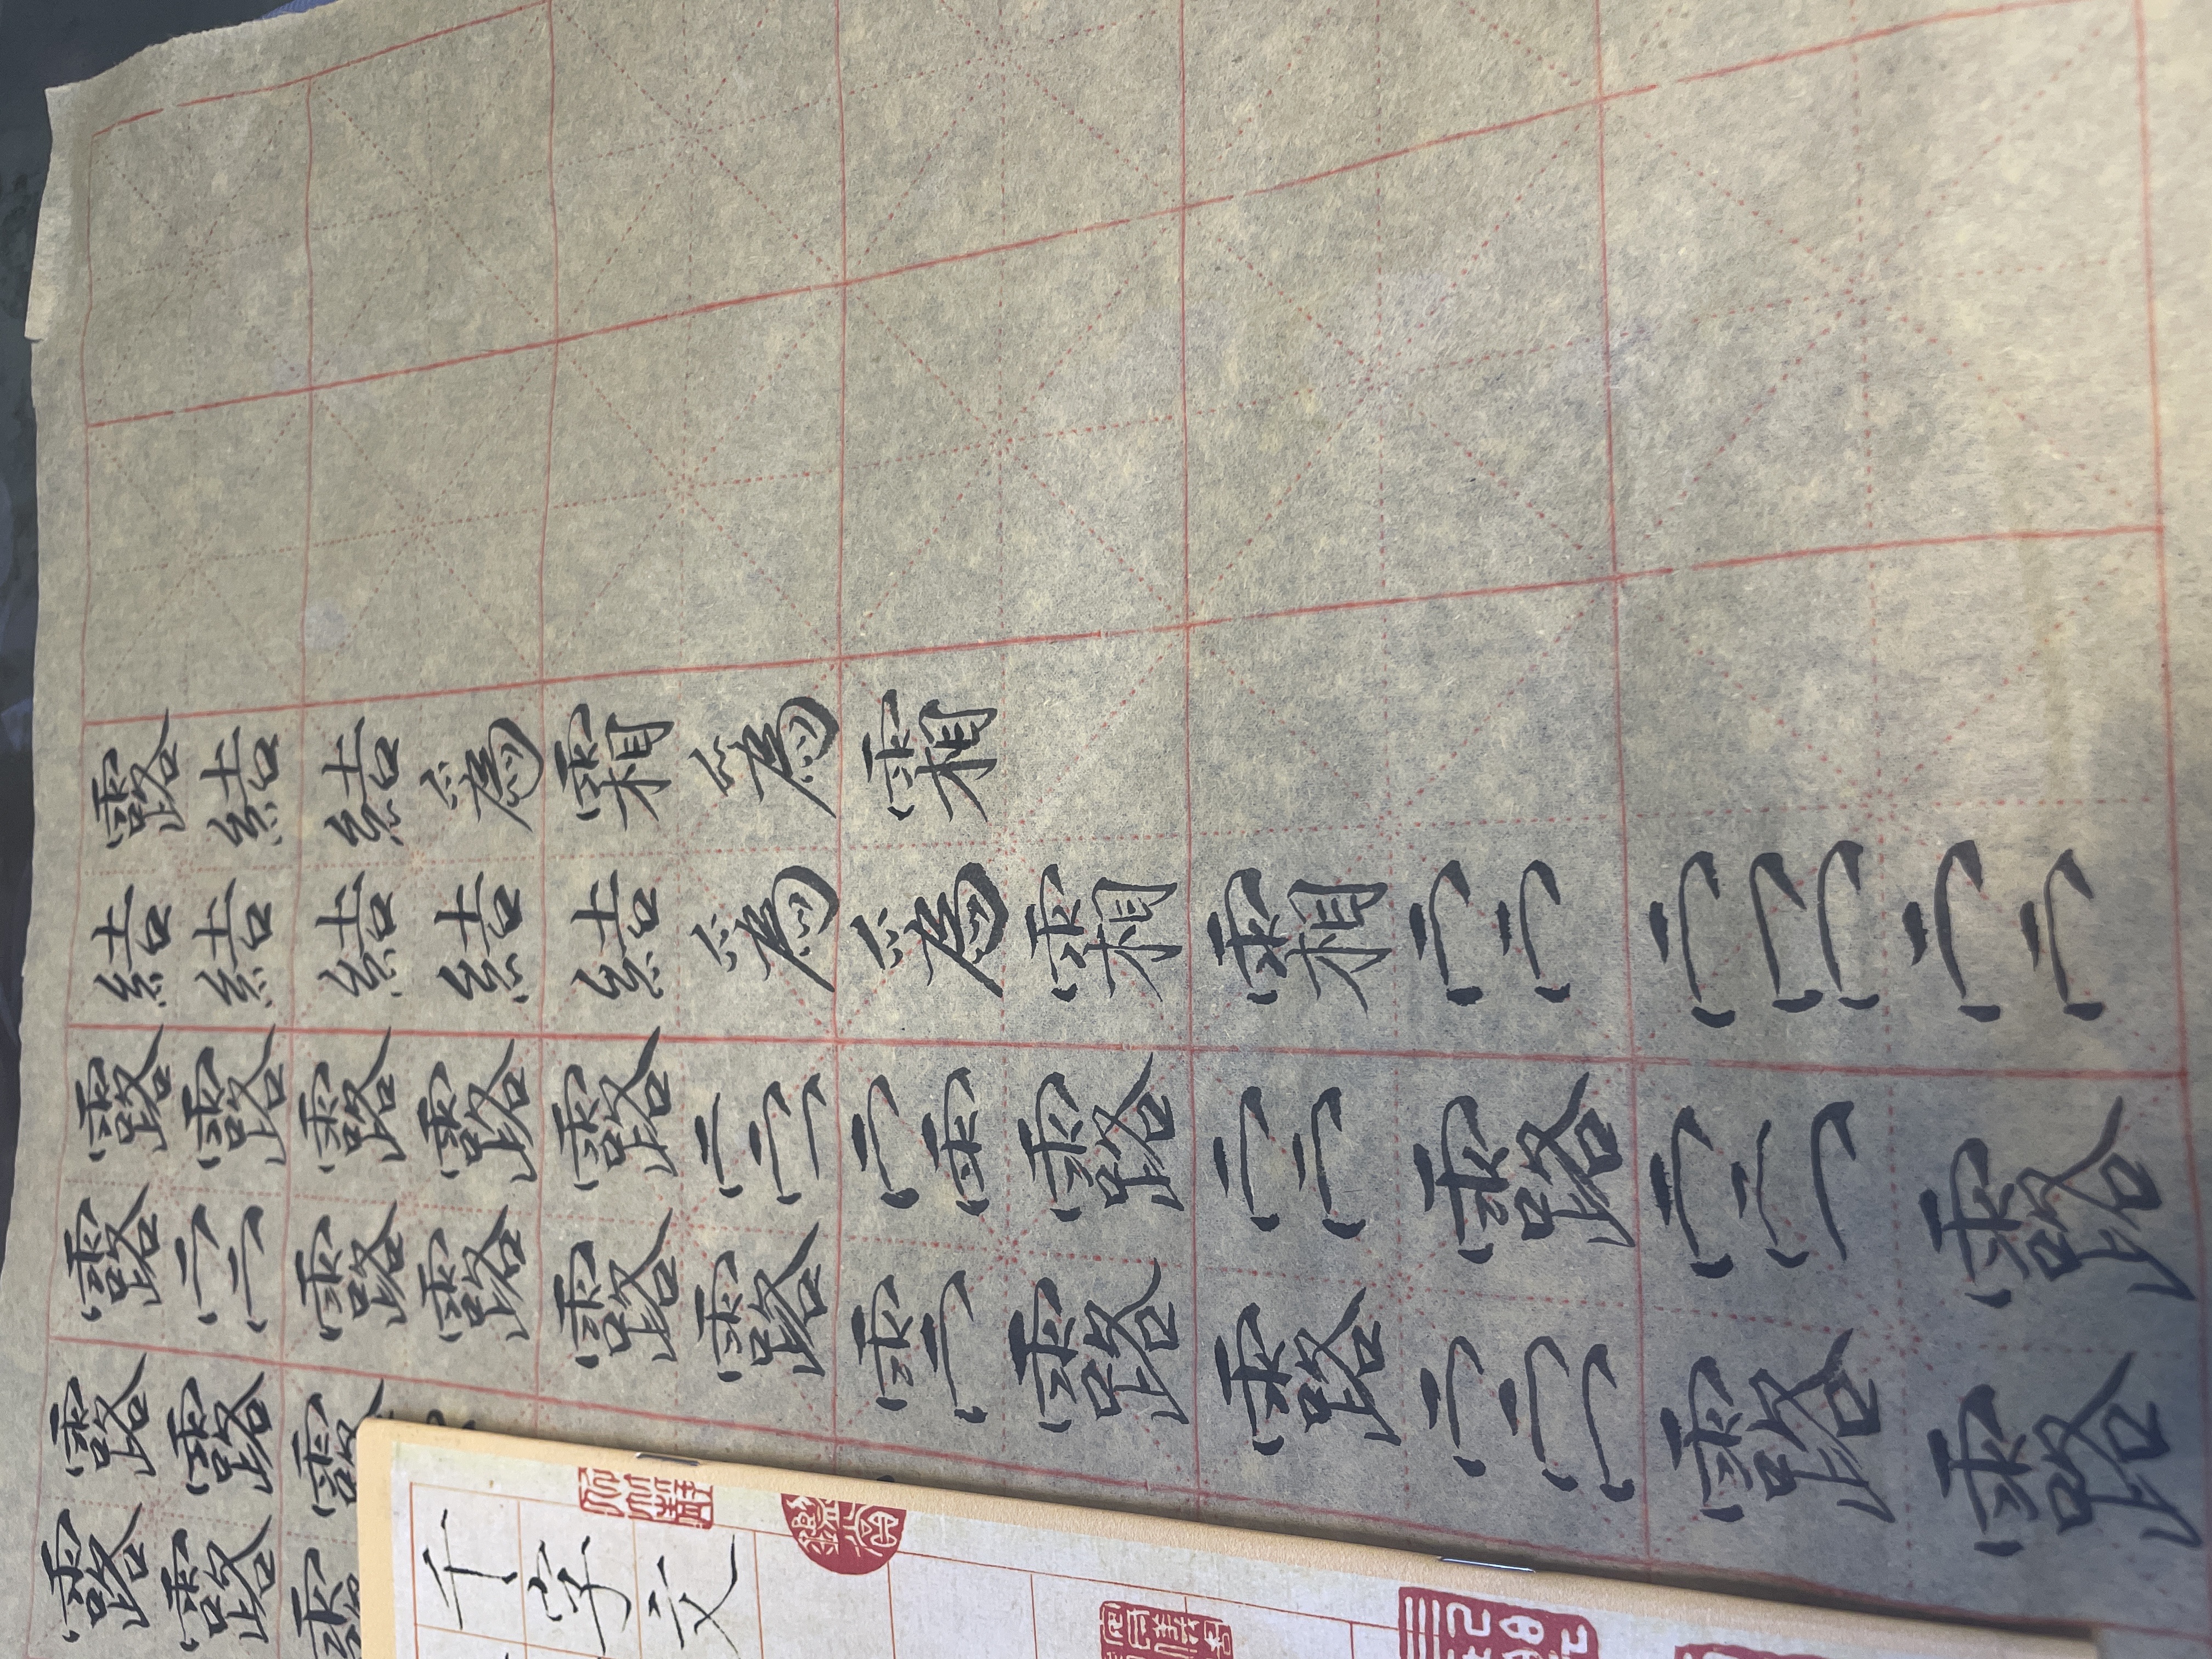 露結結爲霜爲霜
結結結結結爲爲霜霜
露露露露露露露露
露露露露露露露露露
露露露
露露
千字文
鑑賞